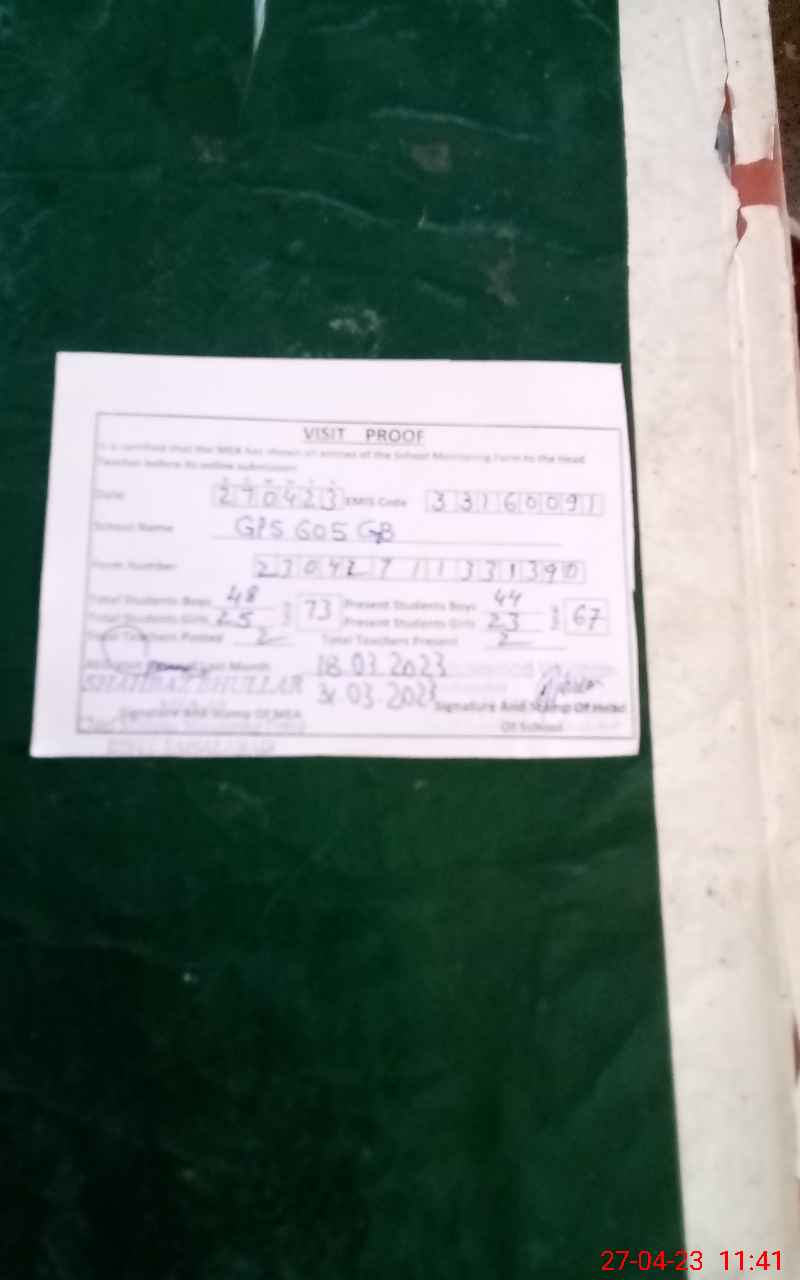 VISIT PROOF
It is certified that the MEA has shown all entries of the School Monitoring Form to the Head
Teacher before its online submission
Date 270423 EMIS Code 33160091
School Name GPS 605 GB
Form Number 23042711331390
Total Students Boys 48 73 Present Students Boys 44 67
Total Students Girls 25 Present Students Girls 23
Total Teachers Posted 2 Total Teachers Present 2
Last Month 18.03.2023
SHAHBAZ BHULLAR 31.03.2023
Signature And Stamp Of MEA Signature And Stamp Of Head
Of School
27-04-23 11:41